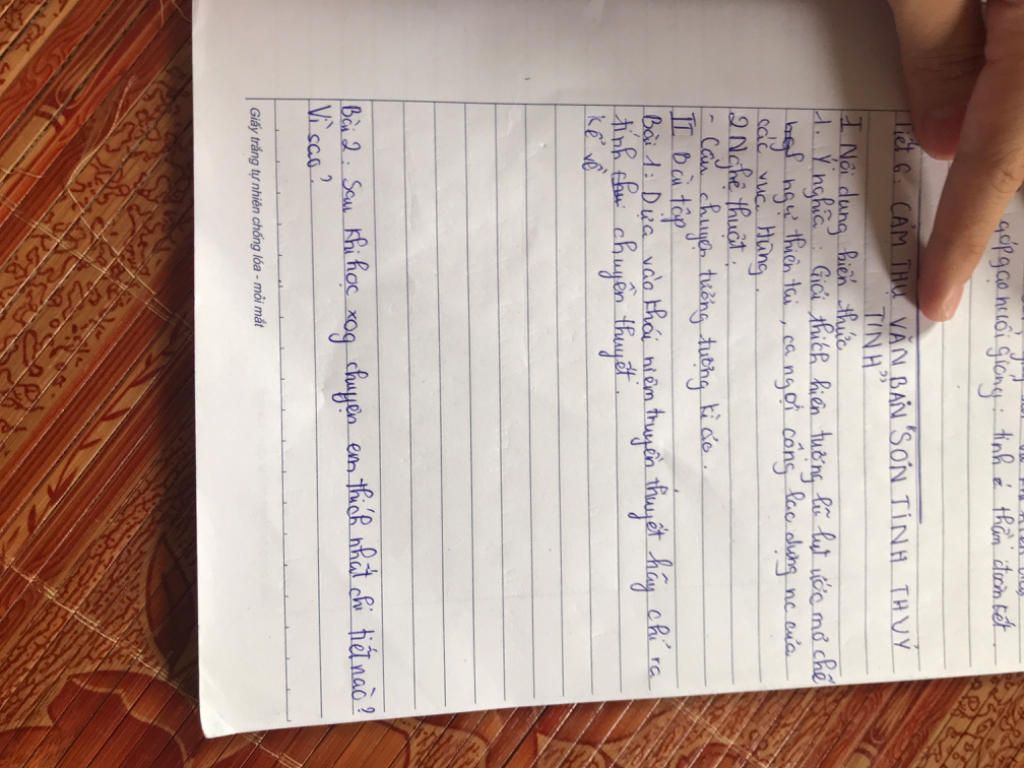 góp gạo nuôi gióng. tinh thần đoàn kết.
Tiết 6: CẢM THỤ VĂN BẢN "SƠN TINH THUỶ
TINH"
I Nôi dung kiến thức
1. Ý nghĩa: Giải thích hiện tượng lũ lụt ước mơ chế
ngự thiên tai, ca ngợi công lao dựng nc của
các vua Hùng.
2 Nghệ thuật.
- Câu chuyện tưởng tượng kì ảo.
II Bài tập
Bài 1: Dựa vào khái niệm truyền thuyết hãy chỉ ra
tính chuyền thuyết.
kể về
Bài 2: Sau khi học xog chuyện em thích nhất chi tiết nào?
Vì sao?
Giấy trắng tự nhiên chống lóa - mỏi mắt